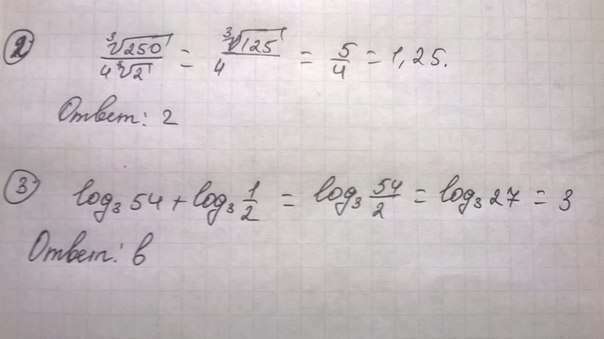 2) ∛250 / 4∛2 = ∛125 / 4 = 5/4 = 1,25.
Ответ: 2
3) log₃ 54 + log₃ 1/2 = log₃ 54/2 = log₃ 27 = 3
Ответ: в